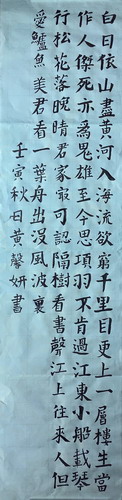 白日依山盡黃河入海流欲窮千里目更上一層樓生當
作人傑死亦為鬼雄至今思項羽不肯過江東小船載琴
行松花落晚晴君家冣可認隔樹看書聲江上往來人但
愛鱸魚美君看一葉舟出沒風波裏
壬寅秋日黃馨妍書